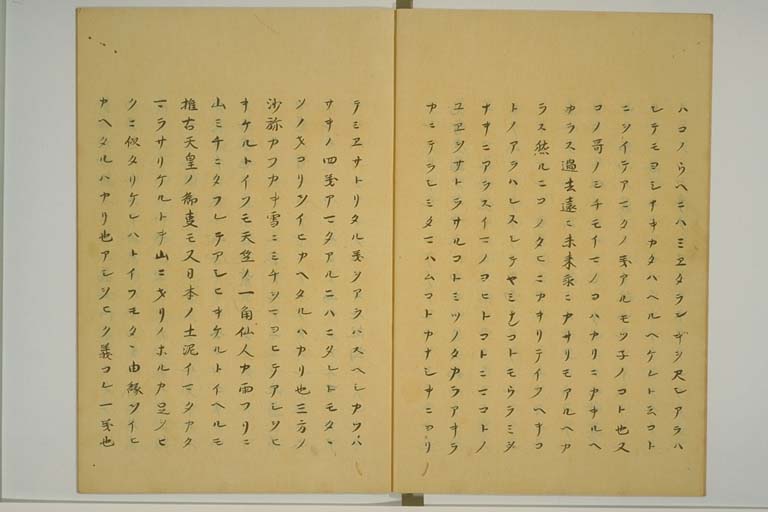 ハコノウヘニハミヱタランギシ尺シアラハ
シテモヨシナキカタハヘルヘケレト云コト
ニツイテアマタノ義アルモツ子ノコト也ス
コノ哥ノミチモイマノコハカリニカキルヘ
カラス過去遠々未来永々カサリモアルヘカ
ラス然ルニコノタヒニカキリテイフヘキコ
トノアラハレスシテヤミナムコトモウラミジ
ナキニアラスイマノヨヒトコトニマコトノ
ユヱヲサトラサルコトミツノタカラアキラ
カニテラシミタマハムコトカナシキニコリ
テミヱサトリタル義ヲアラハスヘシカツハ
サキノ四義アマタアルニハニタレトモタヽ
ソノキコリヲイヒカヘタルハカリ也三方ノ
沙弥カフカキ雪ニミチヲマヨヒテアシヲヒ
キケルトイヲモ天竺ノ一角仙人カ雨フリニ
山ミチニタフレテアシヒキケルトイヘルモ
推古天皇ノ為妻モ又日本ノ土泥イマタカタ
マラサリケルトキ山ニキリノホルカ足ヲヒ
クニ似タリケレハトイフモタヽ由縁ヲイヒ
カヘタルハカリ也アシヲヒク義コレ一義也